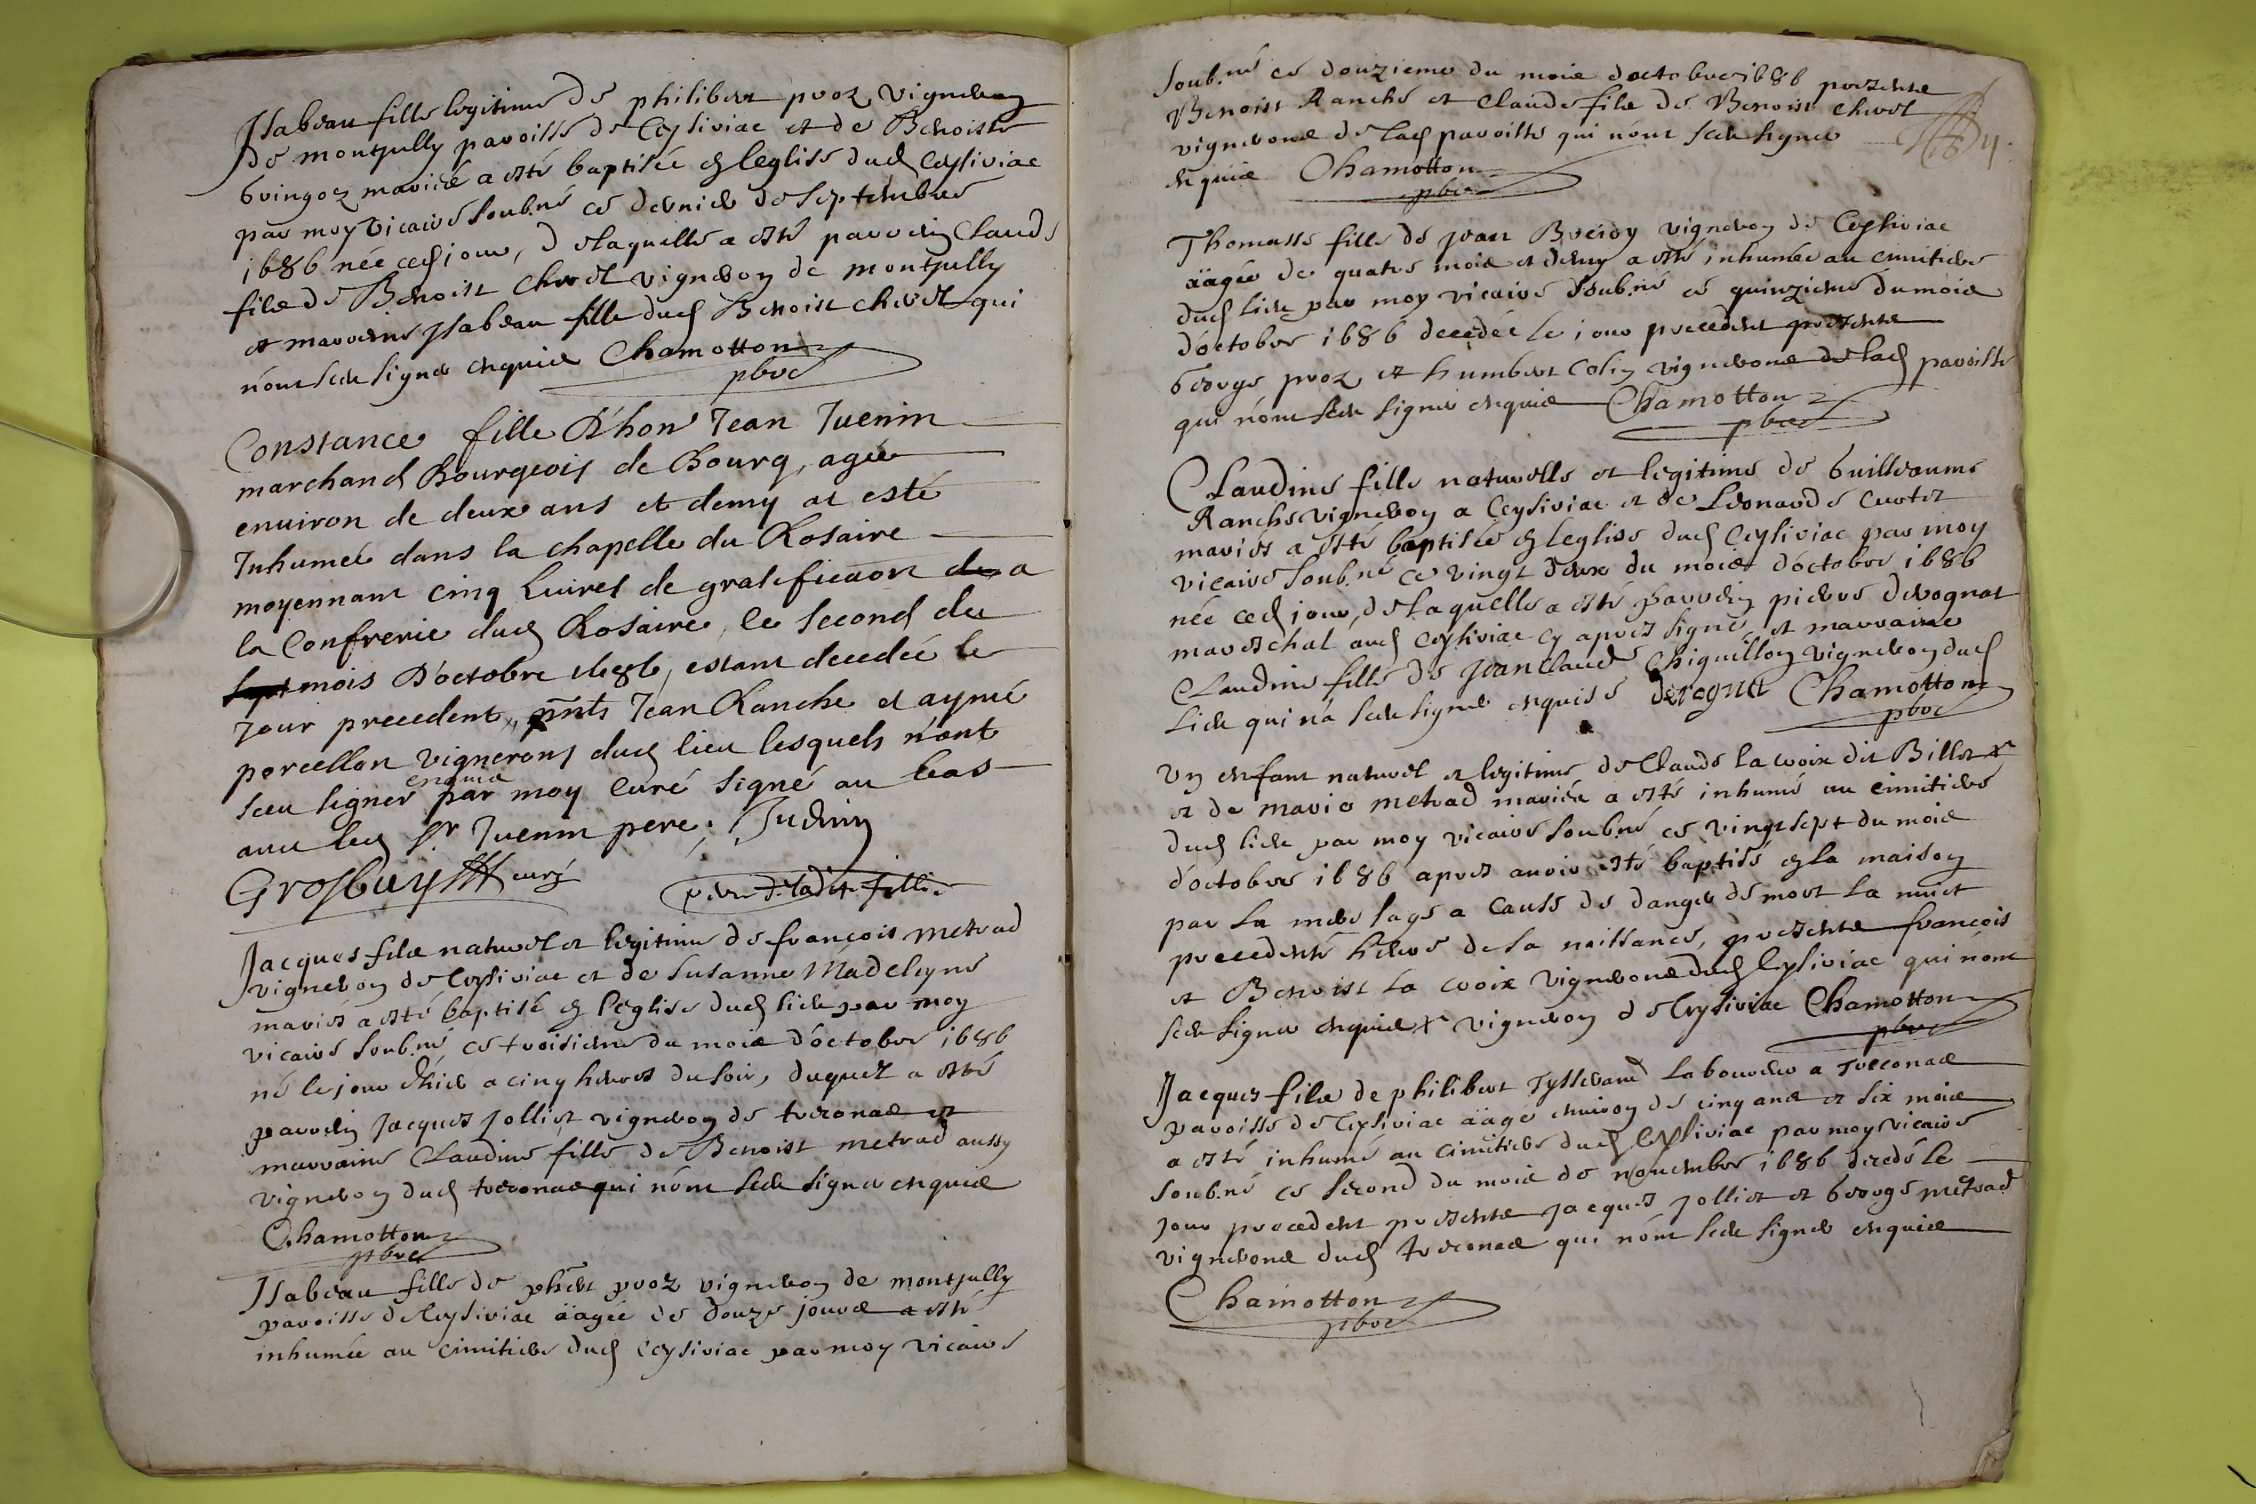 Isabeau fille legitime de philibert proz vigneron
de montjully paroisse de Ceysiriac et de Benoiste
Gringoz mariés a esté baptisée en leglise dud Ceysiriac
par moy vicaire soub.né ce dernier de septembre
1686 née ced jour, de laquelle a esté parrein Claude
fils de Benoist Chevel vigneron de montjully
et marreine Isabeau fille dud Benoist chevel qui
n'ont sceu signer enquis Chamotton
pbre
Constance fille d'hon Jean Juenin
marchand Bourgeois de Bourg, agée
enuiron de deux ans et demy at esté
Inhumeé dans la chapelle du Rosaire
moyennant cinq Liures de gratificaon a
la Confrerie dud Rosaire, le second du
mois D'octobre 1686, estant decedée le
Jour precedent, pnts Jean Ranche et aymé
porcellon vignerons dud lieu lesquels n'ont
sceu signer enquis par moy curé signé au bas
auec led Sr Juenin pere; Juenin
Grosbuy curé
pere de ladite fille
Jacques fils naturel et legitime de françois metrad
vigneron de Ceysiriac et de Susanne Madeleyne
mariés a esté baptisé en l'eglise dud lieu par moy
vicaire soub.né ce troisieme du mois d'octobre 1686
né le jour d'hier a cinq heures du soir, duquel a esté
parrein Jacques Jolliet vigneron de treconas et
marraine Claudine fille de Benoist metrad aussy
vigneron dud treconas qui n'ont sceu signer enquis
Chamotton
pbre
Isabeau fille de phbert proz vigneron de montjully
paroisse de Ceysiriac äagée de douze jours a esté
inhumée au cimitiere dud Ceysiriac par moy vicaire
soub.né ce douzieme du mois d'octobre 1686 presents
Benoist Ranche et Claude fils de Benoist chevel
vignerons de lad paroisse qui n'ont sceu signer
enquis Chamotton
pbre
Thomasse fille de jean Breidy vigneron de Ceysiriac
äagée de quatre mois et demy a esté inhumée au cimitiere
dud lieu par moy vicaire soub.né ce quinzieme du mois
d'octobre 1686 decedée le jour precedent presents
George proz et humbert Colin vignerons de lad paroisse
qui n'ont sceu signer enquis Chamotton
pbre
Claudine fille naturelle et legitime de Guilleaume
Ranche vigneron a Ceysiriac et de Leonarde Curtet
mariés a esté baptisée en leglise dud Ceysiriac par moy
vicaire soub.né ce vingt deux du mois d'octobre 1686
née ced jour, de laquelle a esté parrein pierre derognat
mareschal aud Ceysiriac cy apres signé, et marraine
Claudine fille de Jean Claude Chiquillon vigneron dud
Lieu qui n'a sceu signer enquise derognat Chamotton
pbre
Un enfant naturel et legitime de Claude la croix dit Billet x
et de marie metrad mariés a esté inhumé au cimitiere
dud lieu par moy vicaire soub.né ce vingt sept du mois
d'octobre 1686 apres auoir esté baptisé en la maison
par la mere sage a cause de danger de mort la nuict
precedente heure de sa naissance, presents françois
et Benoist la croix vignerons dud Ceysiriac qui n'ont
sceu signer enquis x vigneron de Ceysiriac Chamotton
pbre
Jacques fils de philibert Tysserand laboureur a Treconas
paroisse de Ceysiriac äagé enuiron de cinq ans et six mois
a esté inhumé au cimitiere dud Ceysiriac par moy vicaire
soub.né ce second du mois de nouembre 1686 decedé le
jour precedent presents jacques jolliet et George metrad
vignerons dud treconas qui n'ont sceu signer enquis
Chamotton
pbre